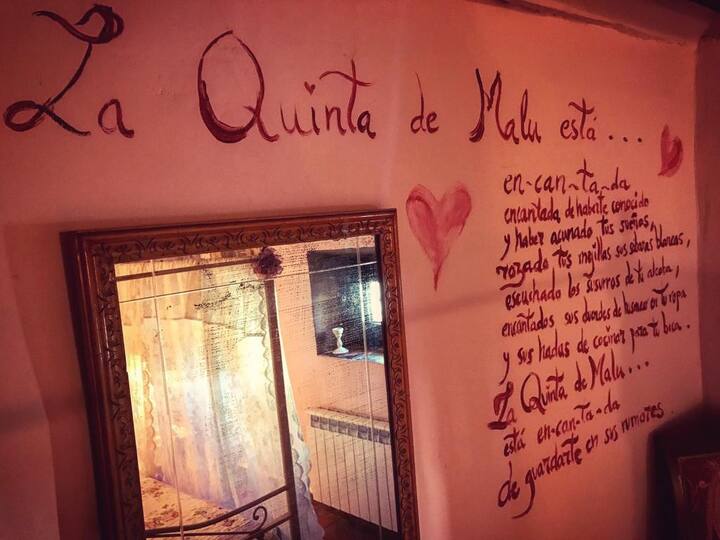 La Quinta de Malu está...
en-can-ta-da
encantada de haberte conocido
y haber acunado tus sueños,
rozado tus mejillas sus sábanas blancas,
escuchado los susurros de tu alcoba,
encantados sus duendes de husmear en tu ropa
y sus hadas de cocinar para tu boca.
La Quinta de Malu...
está en-can-ta-da
de guardarte en sus rumores.